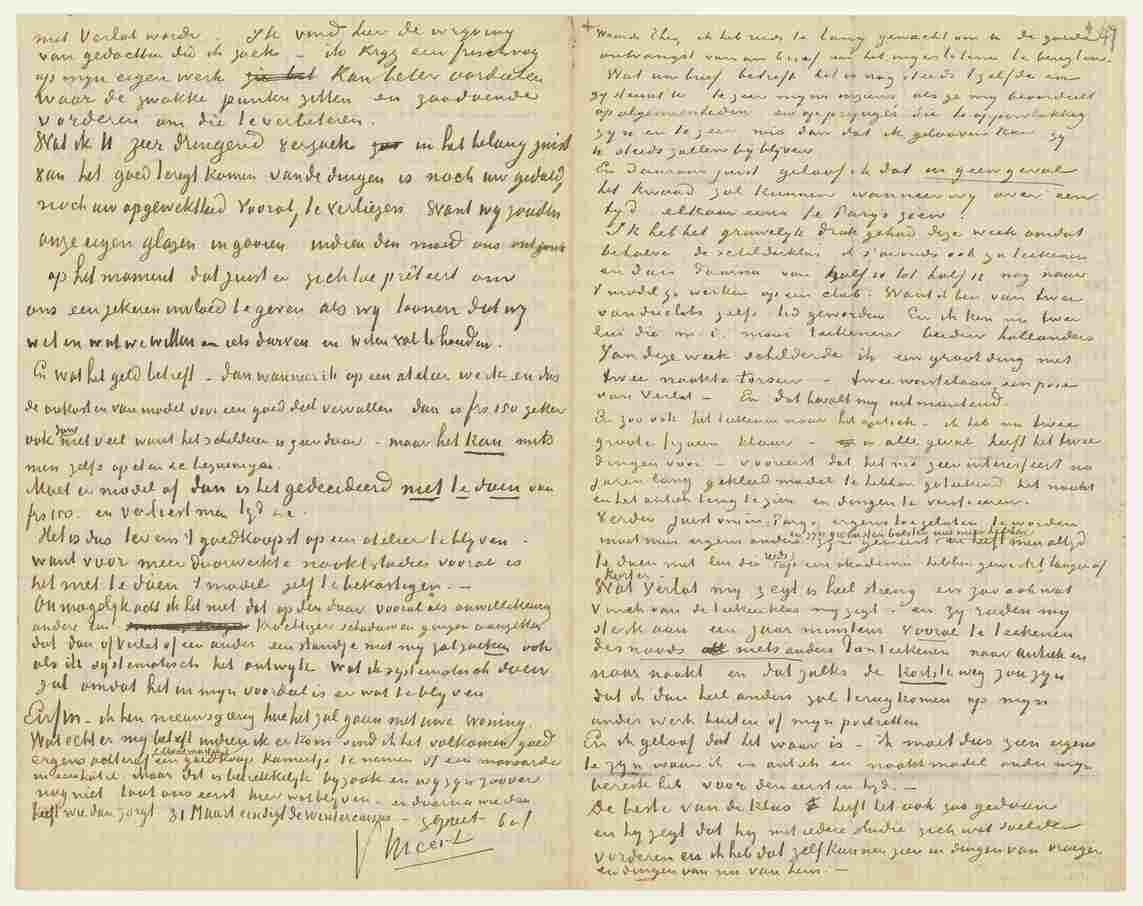 met Verlat worde. Ik vind hier de wrijving
van gedachten die ik zoek – ik krijg een frisch oog
op mijn eigen werk kan beter oordeelen
waar de zwakke punten zitten en zoodoende
vorderen om die te verbeteren.
Wat ik U zeer dringend verzoek in het belang juist
van het goed teregt komen van de dingen is noch uw geduld,
noch uw opgewektheid vooral, te verliezen. Want wij zouden
onze eigen glazen in gooien indien den moed ons
op het moment dat juist er zich toe prêteert om
ons een zekeren invloed te geven als wij toonen dat wij
weten wat we willen en iets durven en weten vol te houden.
En wat het geld betreft – dan wanneer ik op een atelier werk en dus
de onkosten van model voor een goed deel vervallen dan is frs. 150 zeker
ook dan niet veel want het schilderen is zeer duur – maar het kan mits
men zelfs op eten &c bezuinige.
Moet er model af dan is het gedecideerd niet te doen van
frs 150. en verliest men tijd &c.
Het is dus tevens 't goedkoopst op een atelier te blijven –
want voor meer doorwerkte naaktstudies vooral is
het niet te doen 't model zelf te bekostigen. –
Onmogelijk acht ik het niet dat op den duur vooral als aanvullenderwijs
andere krachtiger schaduwen gingen aanzetten
dat dan of Verlat of een ander een standje met mij zal zoeken ook
als ik systematisch het ontwijk Wat ik systematisch doen
zal omdat het in mijn voordeel is er wat te blijven
Enfin – ik ben nieuwsgierig hoe het zal gaan met uwe woning.
Wat echter mij betreft indien ik er kom vind ik het volkomen goed
ergens achteraf een goedkoop kamertje te nemen of een mansarde
in een hotel. Maar dit is betrekkelijk bijzaak en wij zijn zoover
nog niet laat ons eerst hier wat blijven – en daarna wie dan
leeft wie dan zorgt 31 Maart eindigt de wintercursus – gegroet b.à.t.
Vincent
+ 247
Waarde Theo, ik heb reeds te lang gewacht om U de goede
ontvangst van uw brief en het ingeslotene te berigten.
Wat uw brief betreft het is nog steeds 't zelfde en
gij steunt U te zeer mijns inziens als ge mij beoordeelt
op algemeenheden en op prejugés die te oppervlakkig
zijn en te zeer mis dan dat ik gelooven kan zij
U steeds zullen bij blijven
En daarom juist geloof ik dat in geen geval
het kwaad zal kunnen wanneer wij over een
tijd elkaar eens te Parijs zien.
Ik heb het gruwelijk druk gehad deze week omdat
behalve de schilderklas ik s'avonds ook ga teekenen
en dan daarna van half 10 tot half 12 nog naar
't model ga werken op een club. Want ik ben van twee
van die clubs zelfs lid geworden. En ik ken nu twee
lui die m.i. mooi teekenen beiden hollanders
Van deze week schilderde ik een groot ding met
twee naakte torsen – twee worstelaars, een pose
van Verlat – En dat bevalt mij uitmuntend.
En zoo ook het teekenen naar het antiek – ik heb nu twee
groote figuren klaar – in alle geval heeft het twee
dingen voor – vooreerst dat het mij zeer interesseert na
jaren lang gekleed model te hebben geteekend het naakt
en het antiek terug te zien en dingen te verifieeren.
Verder juist om in Parijs ergens toegelaten te worden
moet men ergens anders zijn geweest en heeft men altijd
te doen met lui die reeds op een akademie hebben gewerkt langer of
korter
Wat Verlat mij zegt is heel streng en zoo ook wat
Vinck van de teekenklas mij zegt – en zij raden mij
sterk aan een jaar minstens vooral te teekenen
desnoods niets anders dan teekenen naar antiek en
naar naakt en dat zulks de kortste weg zou zijn
dat ik dan heel anders zal terug komen op mijn
ander werk buiten of mijn portretten
En ik geloof dat het waar is – ik moet dus zien ergens
te zijn waar ik en antiek en naaktmodel onder mijn
bereik heb voor den eersten tijd. –
De beste van de klas heeft het ook zoo gedaan
en hij zegt dat hij met iedere studie zich wat voelde
vorderen en ik heb dat zelf kunnen zien in dingen van vroeger
en dingen van nu van hem. –